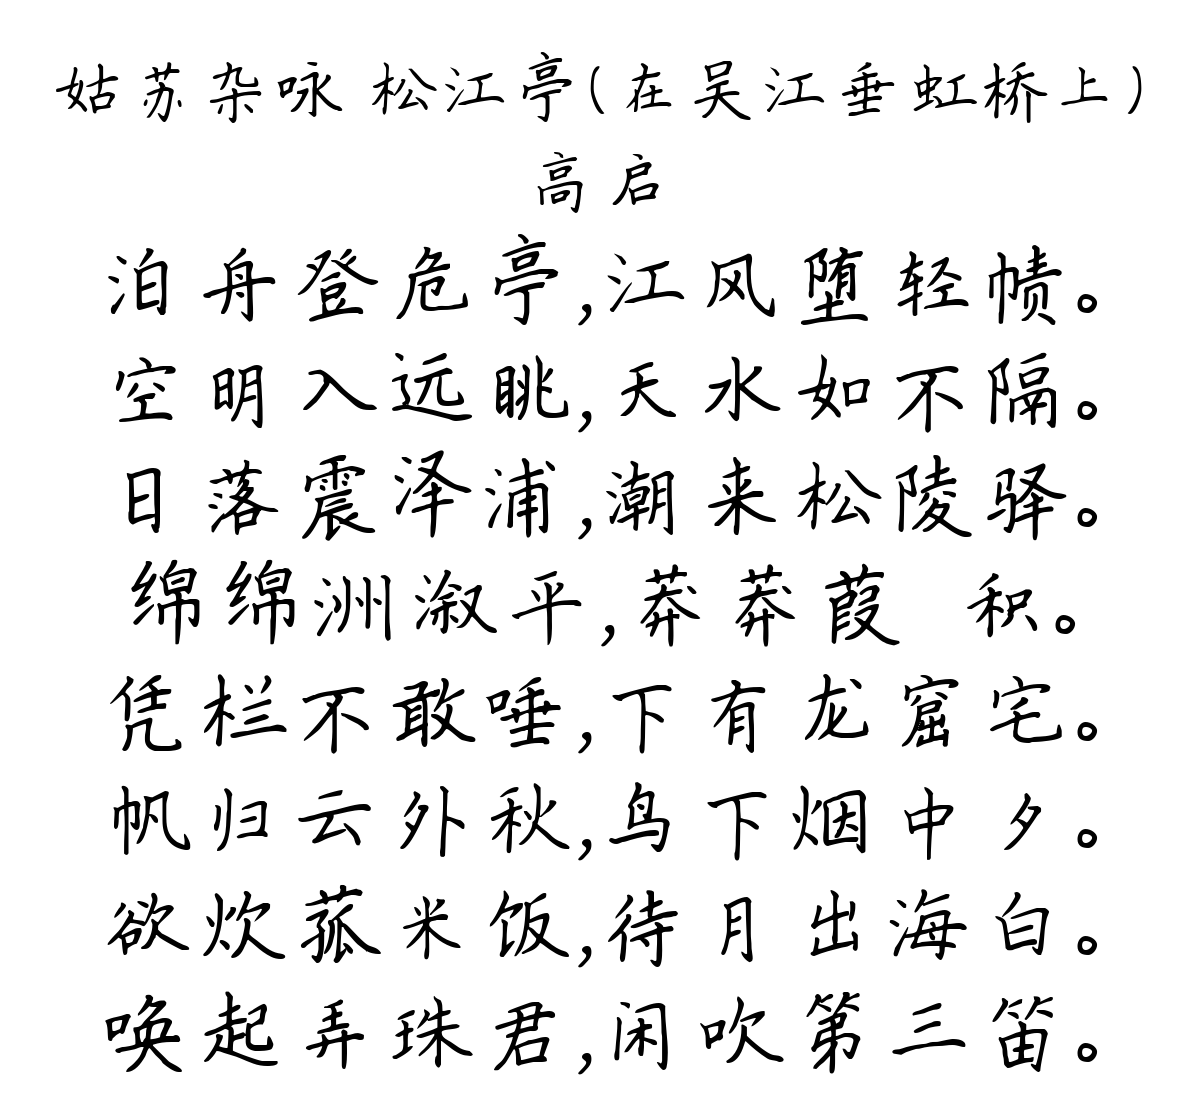 姑苏杂咏 松江亭(在吴江垂虹桥上)
高启
泊舟登危亭,江风堕轻帻。
空明入远眺,天水如不隔。
日落震泽浦,潮来松陵驿。
绵绵洲溆平,莽莽葭 积。
凭栏不敢唾,下有龙窟宅。
帆归云外秋,鸟下烟中夕。
欲炊菰米饭,待月出海白。
唤起弄珠君,闲吹第三笛。